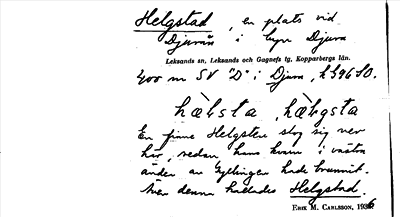 Helgstad, en plats vid
Djurån i byn Djura
Leksands sn, Leksands och Gagnefs tg, Kopparbergs län.
400 m SV "D" i Djura, k 596 SO.
hȧlsta, hȧlgsta
En finne Helgsten slog sig ner
här, sedan hans hem i västra
änden av Gyllingen hade brunnit.
Även denna kallades Helgstad.
Erik M. Carlsson, 1936